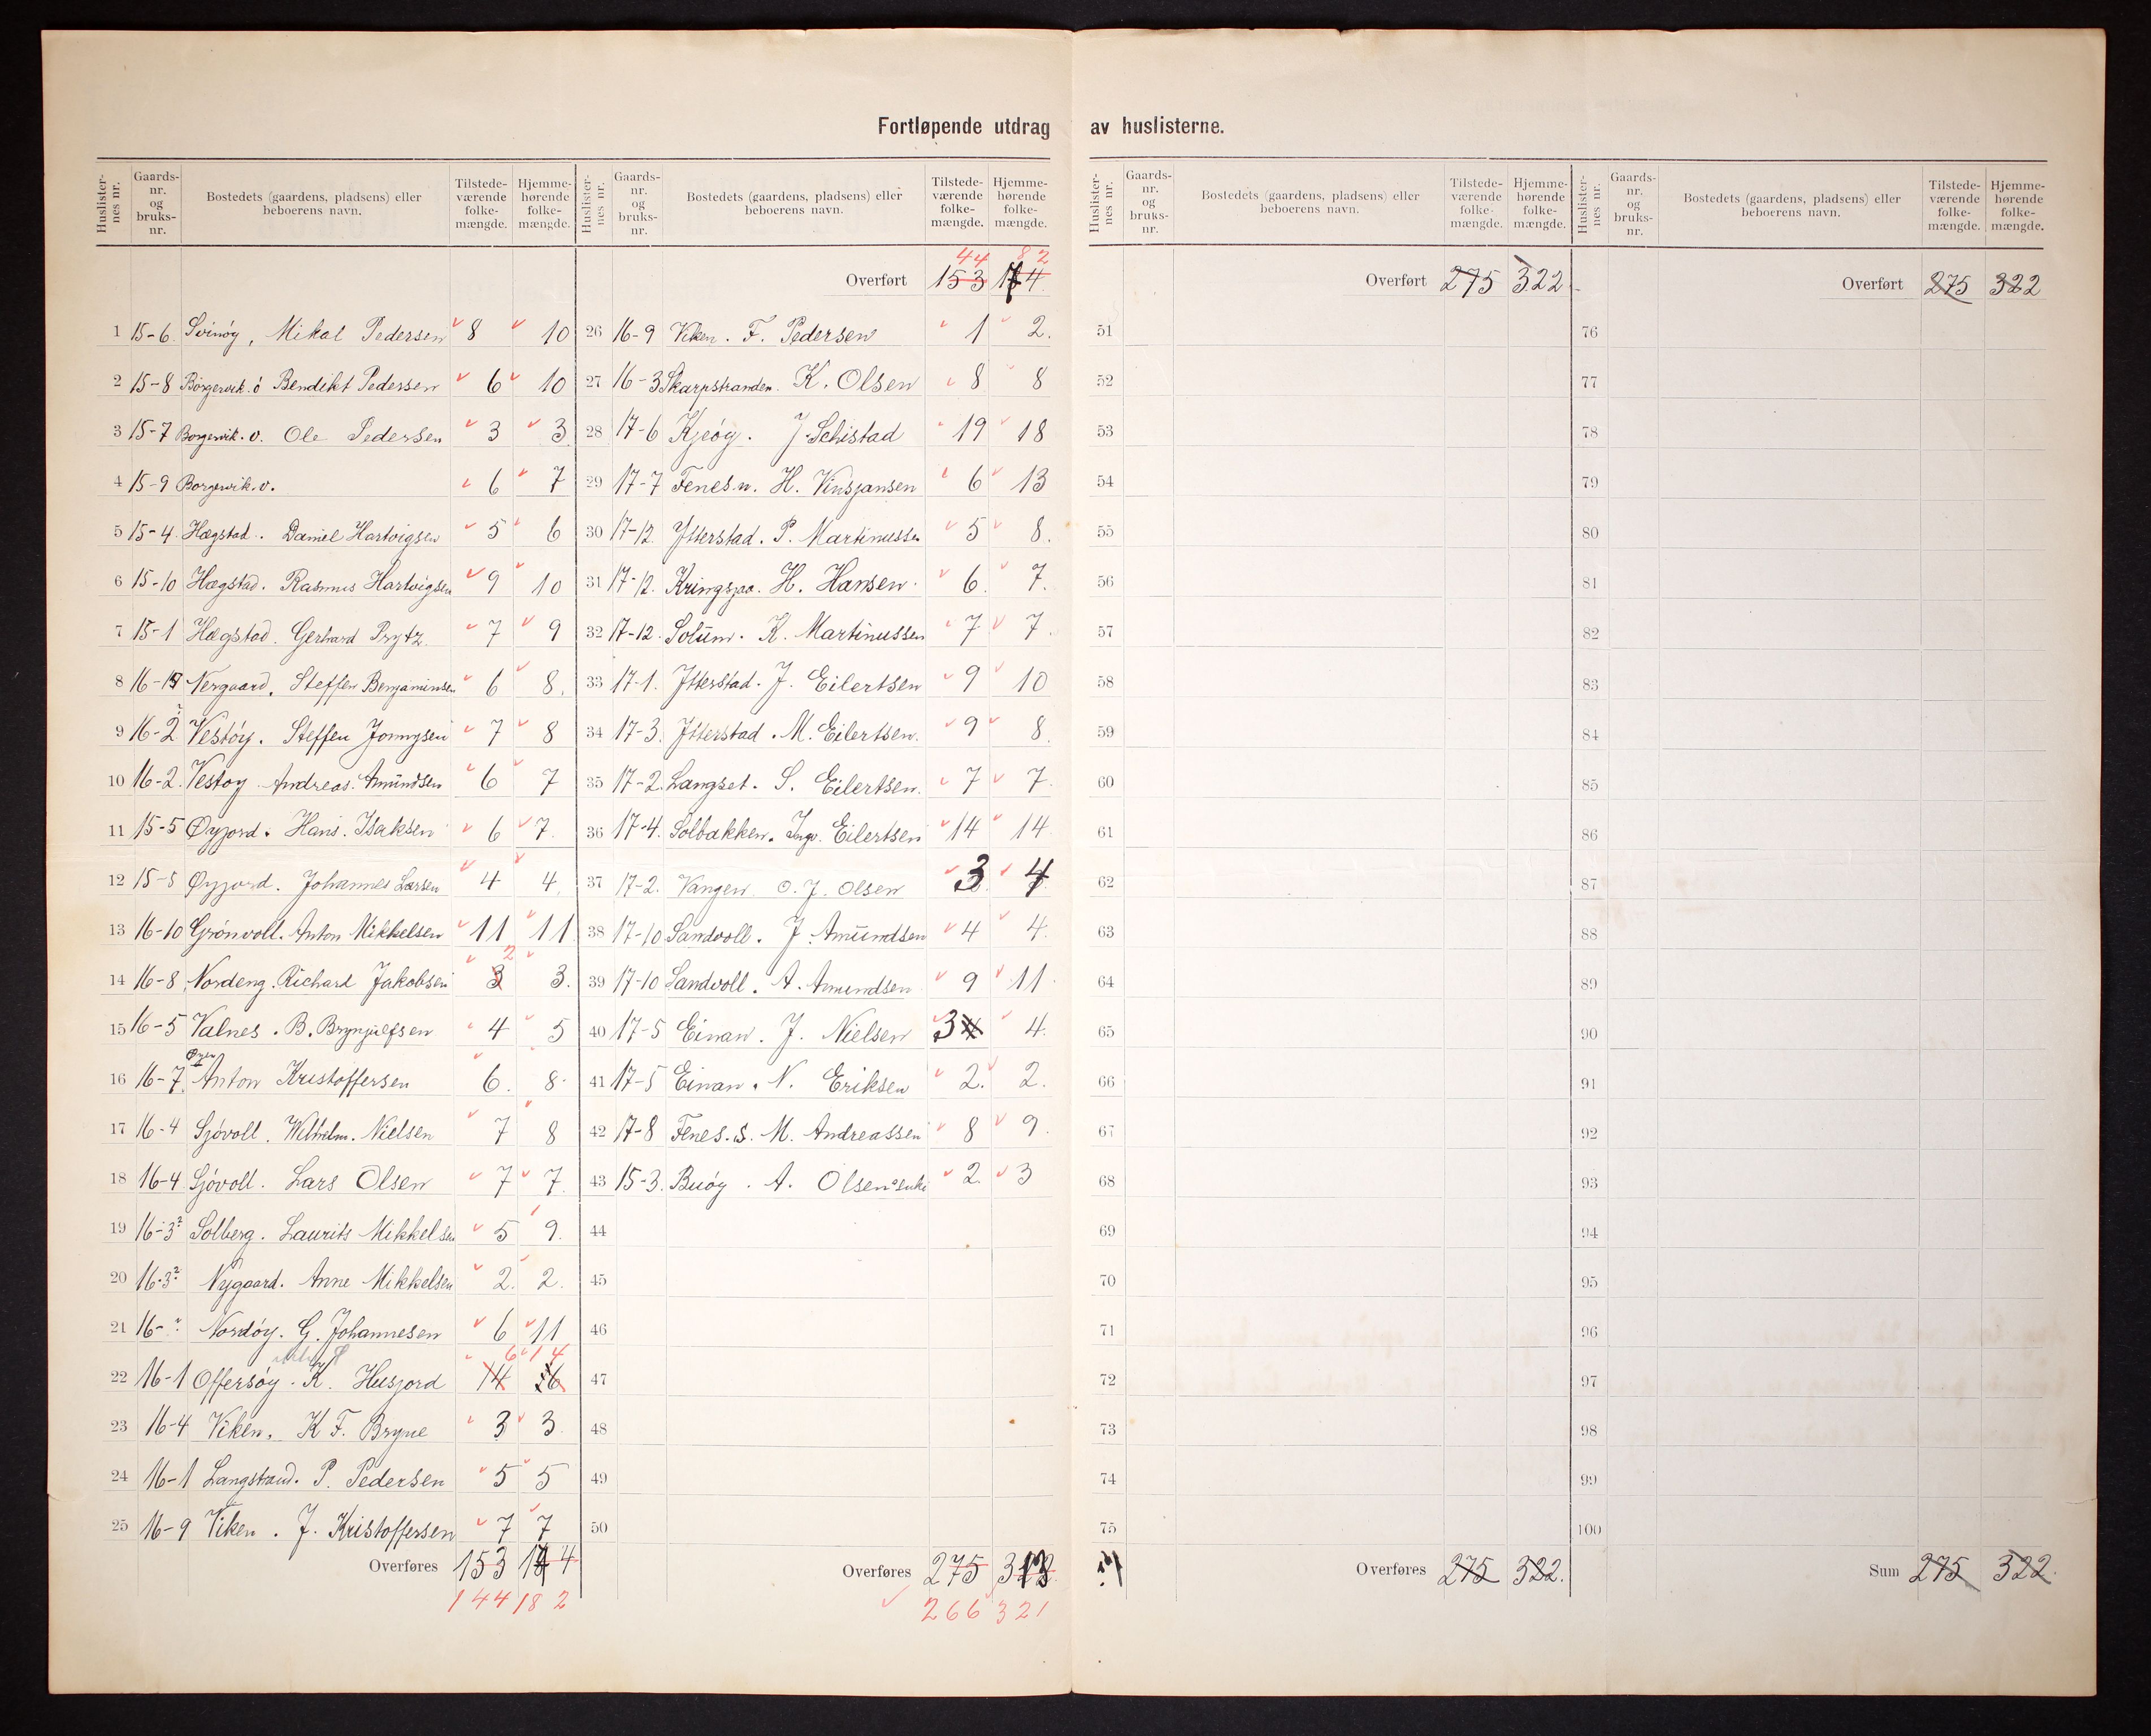 Fortløpende utdrag av huslisterne.
Huslister-nes nr. Gaards-nr. og bruks-nr. Bostedets (gaardens, pladsens) eller beboerens navn. Tilstede-værende folke-mængde. Hjemme-hørende folke-mængde.
1 15-6. Svinøy, Mikal Pedersen 8 10
2 15-8 Börgervik. ö Bendikt Pedersen 6 10
3 15-7 Borgervik. v. Ole Pedersen 3 3
4 15-9 Borgervik. v. 6 7
5 15-4. Hægstad. Daniel Hartvigsen 5 6
6 15-10 Hægstad. Rasmus Hartvigsen 9 10
7 15-1 Hægstad. Gerhard Prytz. 7 9
8 16- Nergaard, Steffen Benjaminsen 6 8.
9 16-2 Vestöy. Steffen Jonnysen 7 8
10 16-2. Vestoy Andreas. Amundsen 6 7
11 15-5 Øyjord. Hans. Isaksen 6 7.
12 15-5 Øyjord. Johannes Larsen 4 4.
13 16-10 Grönvoll. Anton Mikkelsen 11 11
14 16-8 Nordeng. Richard Jakobsen 3 2 3.
15 16-5 Valnes. B. Brynjulfsen 4 5
16 16-7. Øyen Anton Kristoffersen 6. 8.
17 16-4 Sjövoll. Wilhelm. Nielsen 7 8
18 16-4 Sjövoll. Lars Olsen 7 7.
19 16-3² Solberg. Laurits Mikkelsen 5 9.
20 16-3² Nygaard. Anne Mikkelsen 2. 2.
21 16- Nordöy. G. Johannesen 6 11
22 16-1 Offersöy. K. Husjord 14 6 16 14
23 16-4 Viken. K F. Bryne 3 3.
24 16-1 Langstrand. P. Pedersen 5 5
25 16-9 Viken. J. Kristoffersen 7 7
Overføres 153 174
144 182
Huslister-nes nr. Gaards-nr. og bruks-nr. Bostedets (gaardens, pladsens) eller beboerens navn. Tilstede-værende folke-mængde. Hjemme-hørende folke-mængde.
44 82
Overført 153 174
26 16-9 Viken. F. Pedersen 1 2.
27 16-3 Skarpstranden. K. Olsen 8 8
28 17-6 Kjeöy. J. Schistad 19 18
29 17-7 Fenes. n. H. Vinsjansen 6 13
30 17-12. Ytterstad. P. Martinussen 5 8.
31 17-12. Kringsjaa. H. Hansen. 6. 7.
32 17-12. Solum. K. Martinussen 7 7.
33 17-1. Ytterstad. J. Eilertsen 9 10
34 17-3. Ytterstad. M. Eilertsen. 9 8.
35 17-2. Langset. S. Eilertsen. 7 7.
36 17-4. Solbakken. Ingv. Eilertsen 14 14
37 17-2. Vangen O. J. Olsen 3. 4
38 17-10 Sandvoll. J. Amundsen 4 4.
39 17-10 Sandvoll. A. Amundsen 9 11.
40 17-5 Einan. J. Nielsen 3 4 4.
41 17-5 Einan. N. Eriksen 2. 2.
42 17-8 Fenes. S. M. Andreassen 8 9.
43 15-3. Buöy. A. Olsen 2. 3
44
45
46
47
48
49
50
Overføres 275 
266 321
Huslister-nes nr. Gaards-nr. og bruks-nr. Bostedets (gaardens, pladsens) eller beboerens navn. Tilstede-værende folke-mængde. Hjemme-hørende folke-mængde.
Overført 275 322
51
52
53
54
55
56
57
58
59
60
61
62
63
64
65
66
67
68
69
70
71
72
73
74
75
Overføres 275 322.
Huslister-nes nr. Gaards-nr. og bruks-nr. Bostedets (gaardens, pladsens) eller beboerens navn. Tilstede-værende folke-mængde. Hjemme-hørende folke-mængde.
Overført 275 322
76
77
78
79
80
81
82
83
84
85
86
87
88
89
90
91
92
93
94
95
96
97
98
99
100
Sum 275 322.